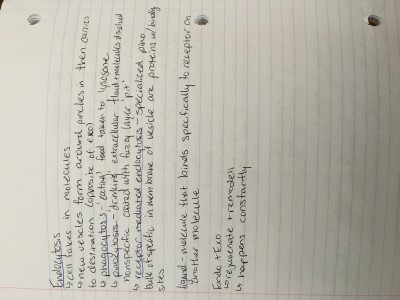 Endocytosis
↳ cell takes in molecules
↳ new vesicles form around particles in then carries
to destination (opposite of exo)
↳ phagocytosis - "eating" food taken to lysosome
↳ pinocytosis - drinking, extracellular fluid + molecules dissolved
nonspecific coated with fuzzy layer "pit"
↳ receptor-mediated endocytosis - specialized pino
bulk of specific in membrane of vesicle are proteins w/ binding
sites
ligand - molecule that binds specifically to receptor on
another molecule
Endo + Exo
↳ rejuvenate + remodel
↳ happens constantly